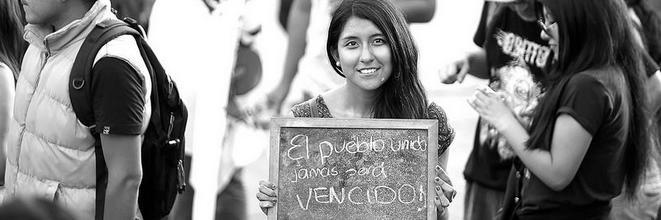 El pueblo unido
jamas será
VENCIDO!